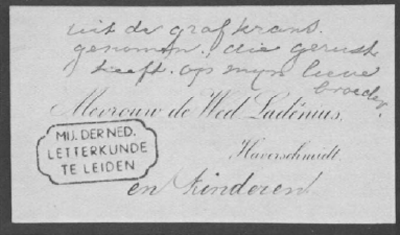 uit de grafkrans.
genomen. die gerust
heeft. op mijn lieve
broeder.
Mevrouw de Wed Ladénius,
Haverschmidt.
MIJ. DER NED.
LETTERKUNDE
TE LEIDEN
en Kinderen